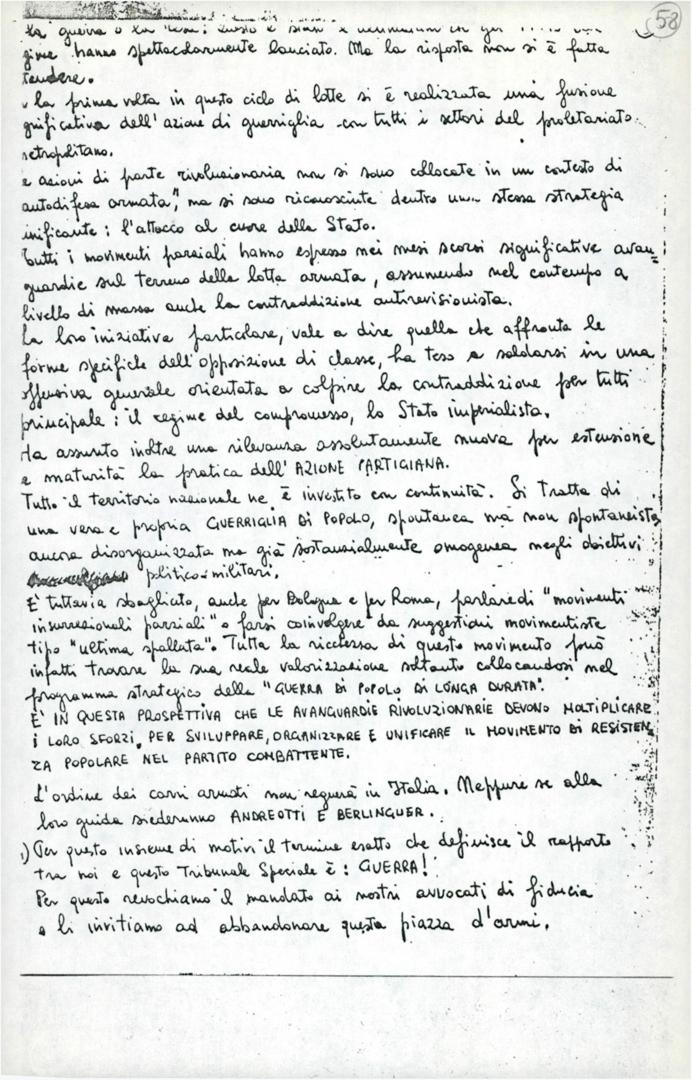 58
la guerra o la
gime hanno spettacolarmente lanciato. Ma la risposta non si è fatta
tendere.
la prima volta in questo ciclo di lotte si è realizzata una fusione
gnificativa dell'azione di guerriglia con tutti i settori del proletariato
etropolitano.
e azioni di parte rivoluzionaria non si sono collocate in un contesto di
autodifesa armata", ma si sono riconosciute dentro una stessa strategia
unificante: l'attacco al cuore dello Stato.
Tutti i movimenti parziali hanno espresso nei mesi scorsi significative avan=
guardie sul terreno della lotta armata, assumendo nel contempo a
livello di massa anche la contraddizione antirevisionista.
La loro iniziativa particolare, vale a dire quella che affronta le
forme specifiche dell'opposizione di classe, ha teso a saldarsi in una
offensiva generale orientata a colpire la contraddizione per tutti
principale: il regime del compromesso, lo Stato imperialista.
Ha assunto inoltre una rilevanza assolutamente nuova per estensione
e maturità la pratica dell'AZIONE PARTIGIANA.
Tutto il territorio nazionale ne è investito con continuità. Si tratta di
una vera e propria GUERRIGLIA DI POPOLO, spontanea ma non spontaneista
ancora disorganizzata ma già sostanzialmente omogenea negli obiettivi
politico-militari.
E' tuttavia sbagliato, anche per Bologna e per Roma, parlare di "movimenti
insurrezionali parziali" o farsi coinvolgere da suggestioni movimentiste
tipo "ultima spallata". Tutta la ricchezza di questo movimento può
infatti trovare la sua reale valorizzazione soltanto collocandosi nel
programma strategico della "GUERRA DI POPOLO DI LUNGA DURATA".
E' IN QUESTA PROSPETTIVA CHE LE AVANGUARDIE RIVOLUZIONARIE DEVONO MOLTIPLICARE
I LORO SFORZI, PER SVILUPPARE, ORGANIZZARE E UNIFICARE IL MOVIMENTO DI RESISTEN
ZA POPOLARE NEL PARTITO COMBATTENTE.
L'ordine dei carri armati non regnerà in Italia. Neppure se alla
loro guida siederanno ANDREOTTI E BERLINGUER.
) Per questo insieme di motivi il termine esatto che definisce il rapporto
tra noi e questo Tribunale Speciale è: GUERRA!
Per questo revochiamo il mandato ai nostri avvocati di fiducia
e li invitiamo ad abbandonare questa piazza d'armi.